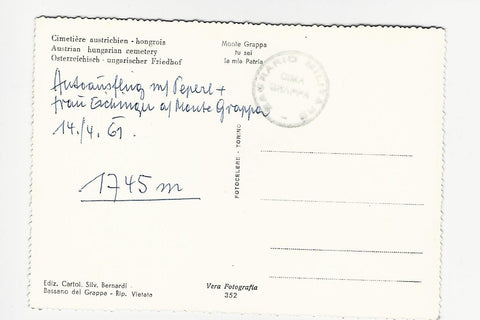 Cimetière austrichien - hongrois
Austrian hungarian cemetery
Österreichisch - ungarischer Friedhof
Monte Grappa
tu sei
la mia Patria
SACRARIO MILITARE
CIMA
GRAPPA
Autoausflug m/ Peperl +
Frau Eschinger a/ Monte Grappa
14./4. 61.
1745 m
FOTOCELERE - TORINO
Ediz. Cartol. Silv. Bernardi
Bassano del Grappa - Rip. Vietata
Vera Fotografia
352